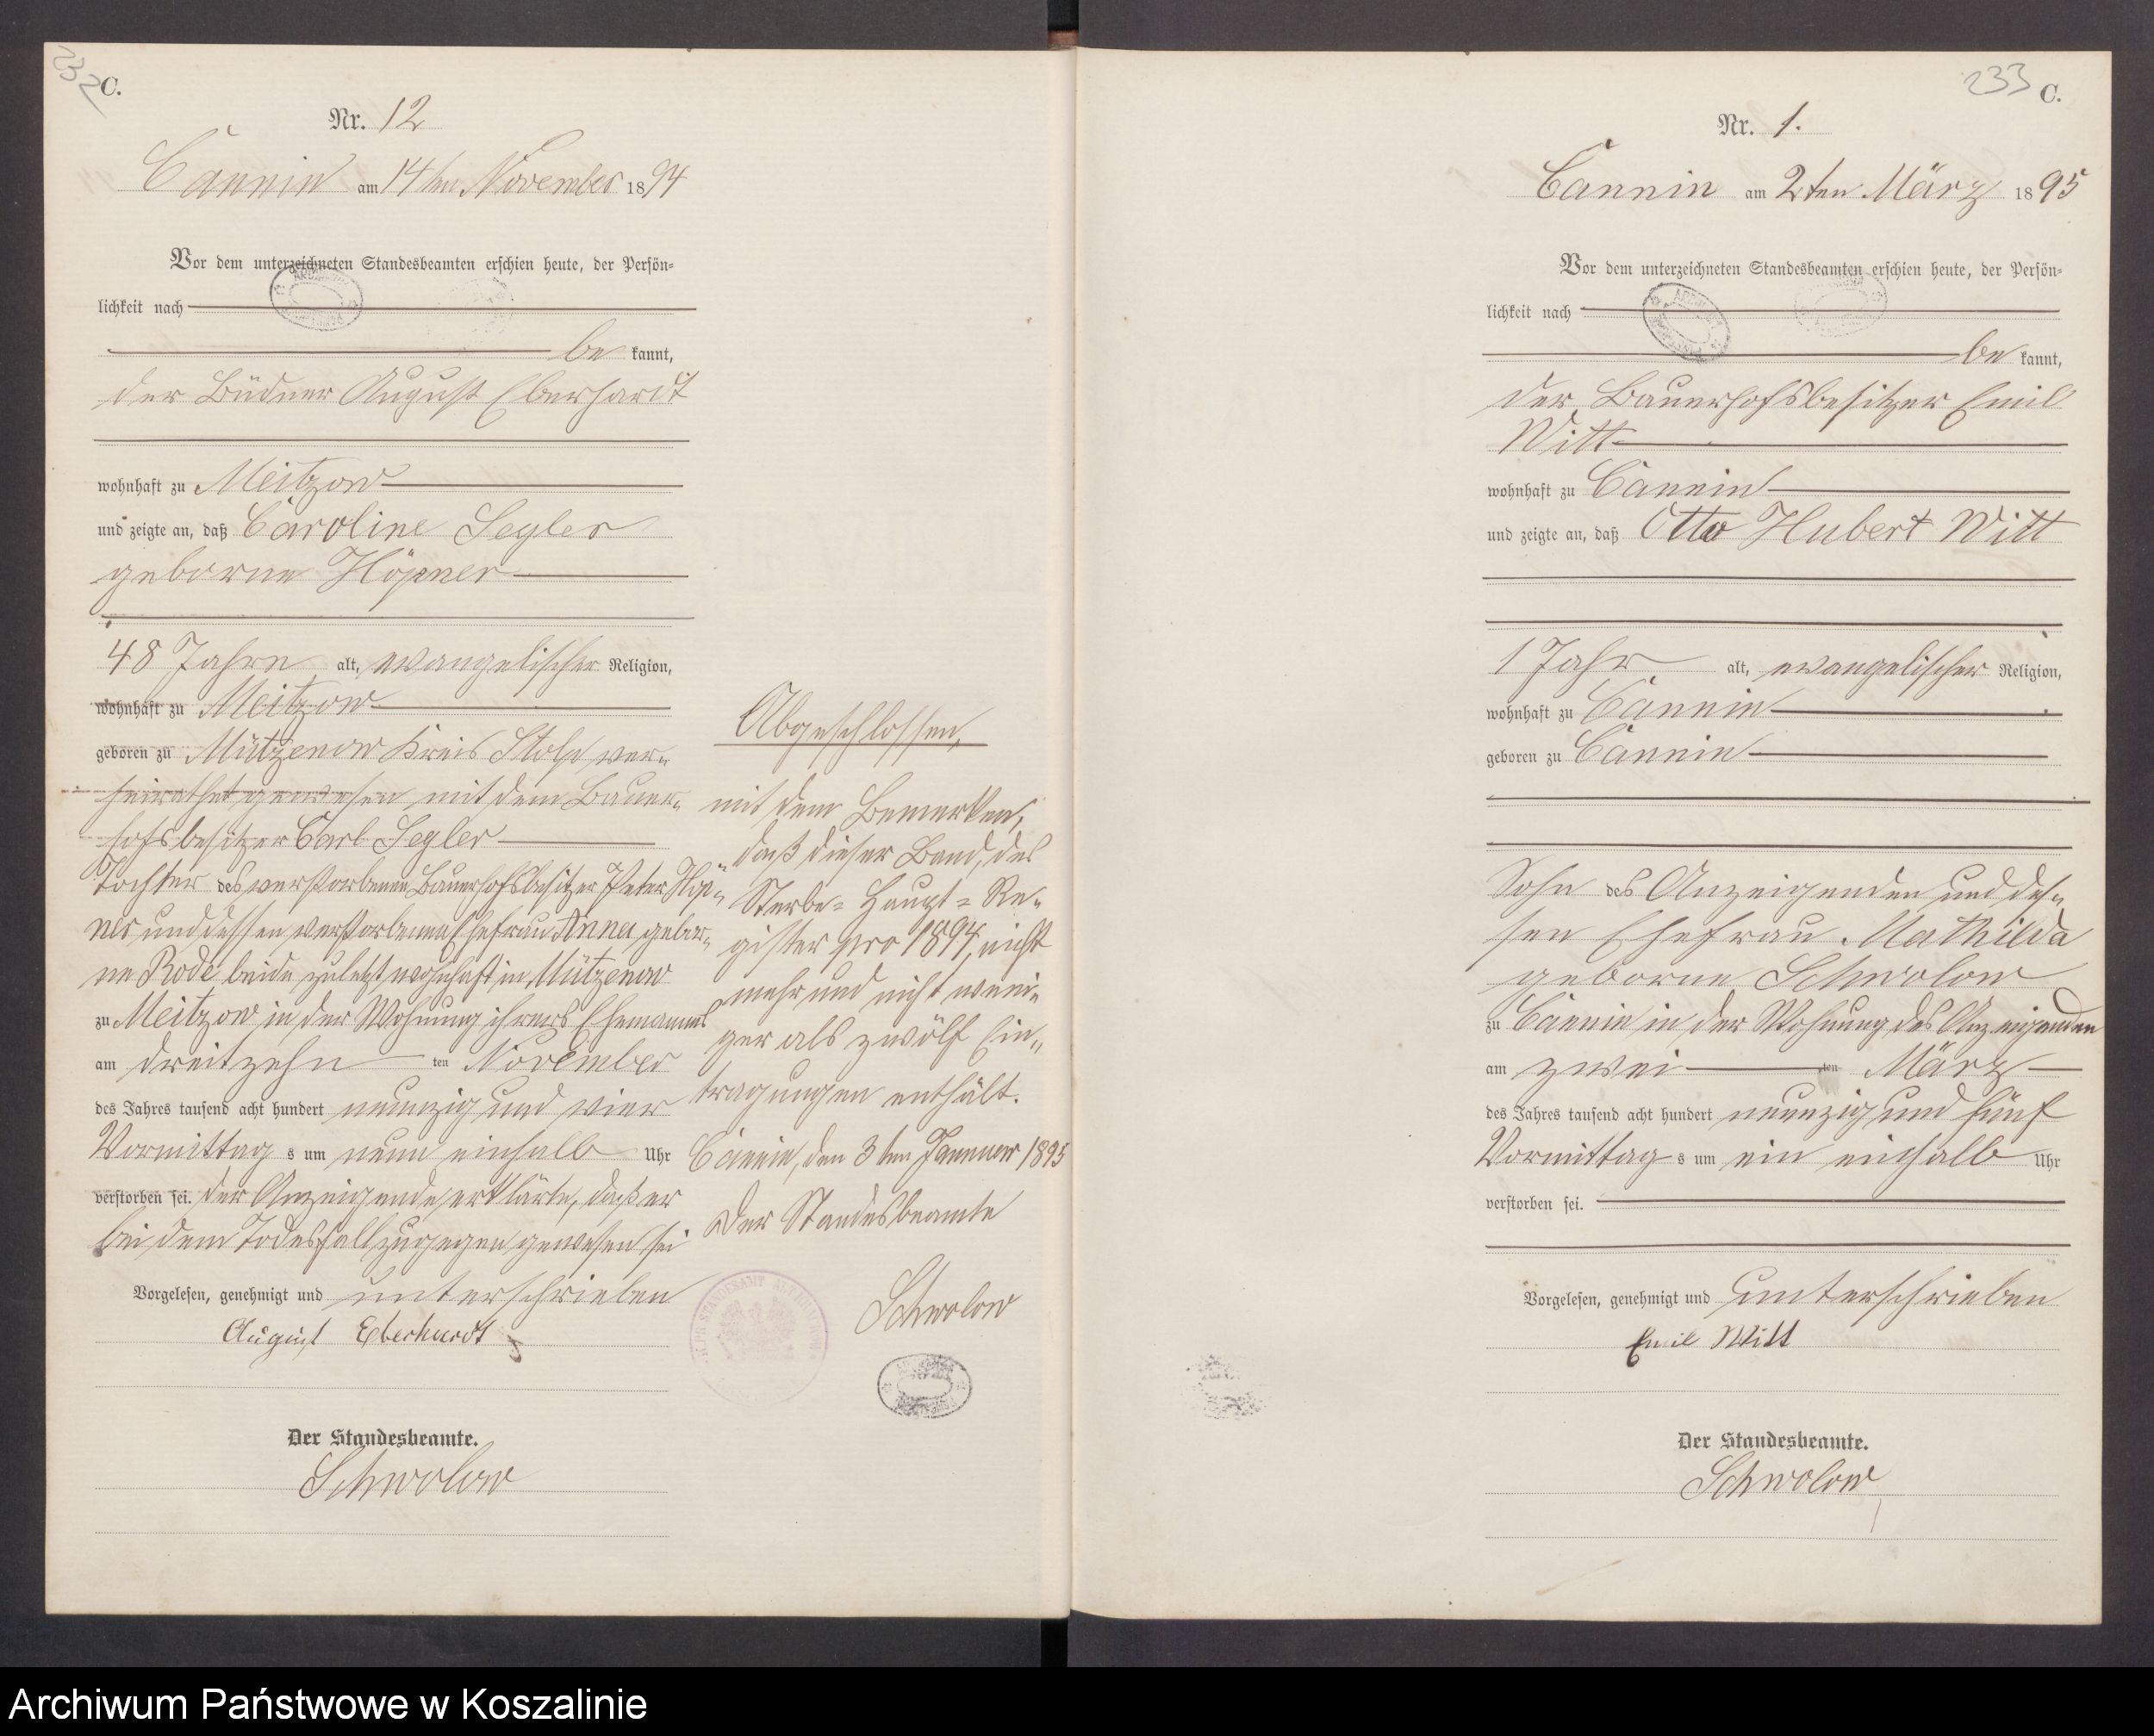 232
C.
Nr. 12
Cannin am 14ten November 1894
Vor dem unterzeichneten Standesbeamten erschien heute, der Persön-
lichkeit nach
be kannt,
der Büdner August Eberhardt
wohnhaft zu Meitzow
und zeigte an, daß Caroline Segler
geborne Höpner
48 Jahre alt, evangelischer Religion,
wohnhaft zu Meitzow
geboren zu Mützenow Kreis Stolp ver-
heirathet gewesen mit dem Bauer-
hofsbesitzer Carl Segler
Tochter des verstorbenen Bauerhofsbesitzer Peter Höp-
ner und dessen verstorbenen Ehefrau Anna gebor-
ne Rode beide zuletzt wohnhaft in Mützenow
zu Meitzow in der Wohnung ihres Ehemannes
am dreizehn ten November
des Jahres tausend acht hundert neunzig und vier
Vormittag s um neun einhalb Uhr
verstorben sei. Der Anzeigende erklärte, daß er
bei dem Todesfall zugegen gewesen sei
Vorgelesen, genehmigt und unterschrieben
August Eberhardt
Der Standesbeamte.
Schwolow
Abgeschlossen,
mit dem Bemerken,
daß dieser Band, des
Sterbe-Haupt-Re-
gister pro 1894, nicht
mehr und nicht weni-
ger als zwölf Ein-
tragungen enthält.
Cannin, den 3ten Januar 1895
Der Standesbeamte
Schwolow
233
C.
Nr. 1.
Cannin am 2ten März 1895
Vor dem unterzeichneten Standesbeamten erschien heute, der Persön-
lichkeit nach
be kannt,
der Bauerhofsbesitzer Emil
Witt
wohnhaft zu Cannin
und zeigte an, daß Otto Hubert Witt
1 Jahr alt, evangelischer Religion,
wohnhaft zu Cannin
geboren zu Cannin
Sohn des Anzeigenden und des-
sen Ehefrau Mathilda
geborne Schwolow
zu Cannin in der Wohnung des Anzeigenden
am zwei ten März
des Jahres tausend acht hundert neunzig und fünf
Vormittag s um ein einhalb Uhr
verstorben sei.
Vorgelesen, genehmigt und unterschrieben
Emil Witt
Der Standesbeamte.
Schwolow
Archiwum Państwowe w Koszalinie